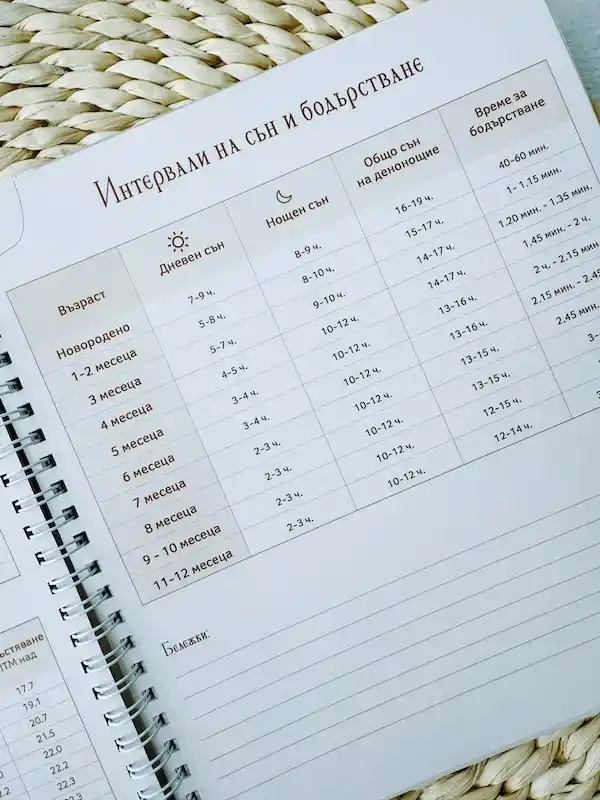 Интервали на сън и бодърстване
Възраст Дневен сън Нощен сън Общо сън на денонощие Време за бодърстване
Новородено 7-9 ч. 8-9 ч. 16-19 ч. 40-60 мин.
1-2 месеца 5-8 ч. 8-10 ч. 15-17 ч. 1- 1.15 мин.
3 месеца 5-7 ч. 9-10 ч. 14-17 ч. 1.20 мин. - 1.35 мин.
4 месеца 4-5 ч. 10-12 ч. 14-17 ч. 1.45 мин. - 2 ч.
5 месеца 3-4 ч. 10-12 ч. 13-16 ч. 2 ч. - 2.15 мин
6 месеца 3-4 ч. 10-12 ч. 13-16 ч. 2.15 мин. - 2.45
7 месеца 2-3 ч. 10-12 ч. 13-15 ч. 2.45 мин.
8 месеца 2-3 ч. 10-12 ч. 13-15 ч. 3-
9 - 10 месеца 2-3 ч. 10-12 ч. 12-15 ч.
11-12 месеца 2-3 ч. 10-12 ч. 12-14 ч.
Бележки:
ъстяване
ИТМ над
17.7
19.1
20.7
21.5
22.0
22.2
22.3
22.3